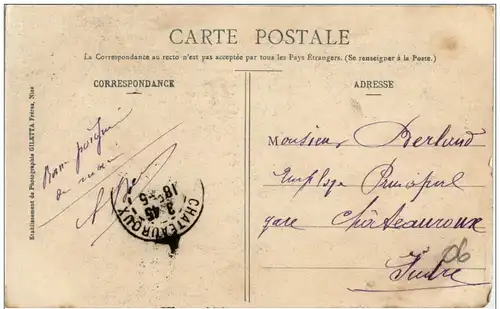 CARTE POSTALE
La Correspondance au recto n'est pas acceptée par tous les Pays Étrangers. (Se renseigner à la Poste.)
CORRESPONDANCE
ADRESSE
Etablissement de Photographie GILETTA Frères, Nice
Bon
de
Monsieur Berland
Employé Principal
gare Châteauroux
Indre
06
CHATEAUROUX
3 45
18 5